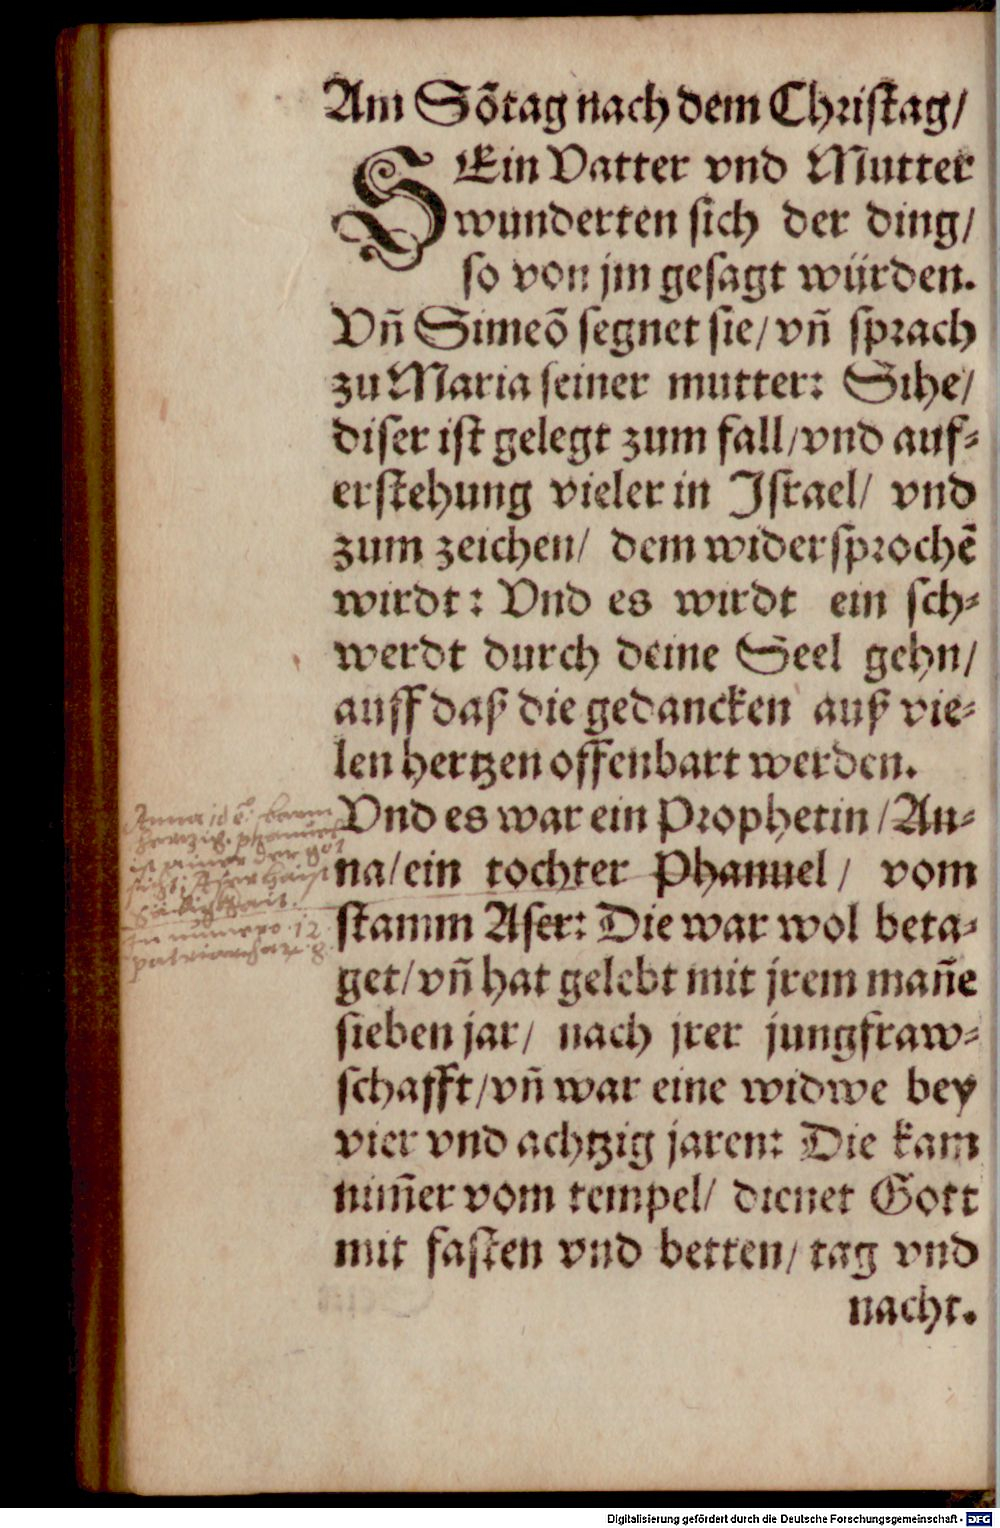 Am Sõtag nach dem Christag/
SEin Vatter vnd Mutter
wunderten sich der ding/
so von jm gesagt würden.
Vñ Simeõ segnet sie/ vñ sprach
zu Maria seiner mutter: Sihe/
diser ist gelegt zum fall/ vnd auf-
erstehung vieler in Israel/ vnd
zum zeichen/ dem widersprochẽ
wirdt: Vnd es wirdt ein sch-
werdt durch deine Seel gehn/
auff daß die gedancken auß vie-
len hertzen offenbart werden.
Vnd es war ein Prophetin/ An-
na/ ein tochter Phanuel/ vom
stamm Aser: Die war wol beta-
get/ vñ hat gelebt mit jrem mañe
sieben jar/ nach jrer jungfraw-
schafft/ vñ war eine widwe bey
vier vnd achtzig jaren: Die kam
nim̃er vom tempel/ dienet Gott
mit fasten vnd betten/ tag vnd
nacht.
Anna id
In numero 12
patriarchar 8
Digitalisierung gefördert durch die Deutsche Forschungsgemeinschaft - DFG